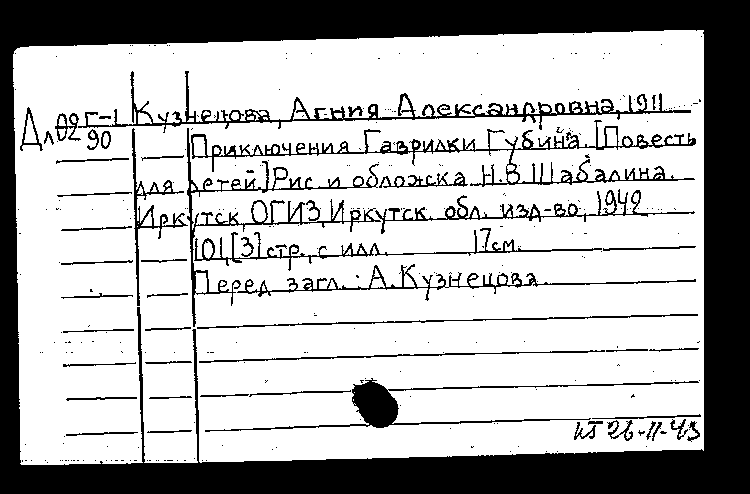 Дл02 Г-1 Кузнецова, Агния Александровна, 1911
90
Приключения Гаврилки Губина. [Повесть
для детей.] Рис и обложка Н.В.Шабалина.
Иркутск, ОГИЗ, Иркутск. обл. изд-во, 1942
101,[3] стр., с илл. 17см.
Перед загл.: А.Кузнецова.
КП 26-II-43